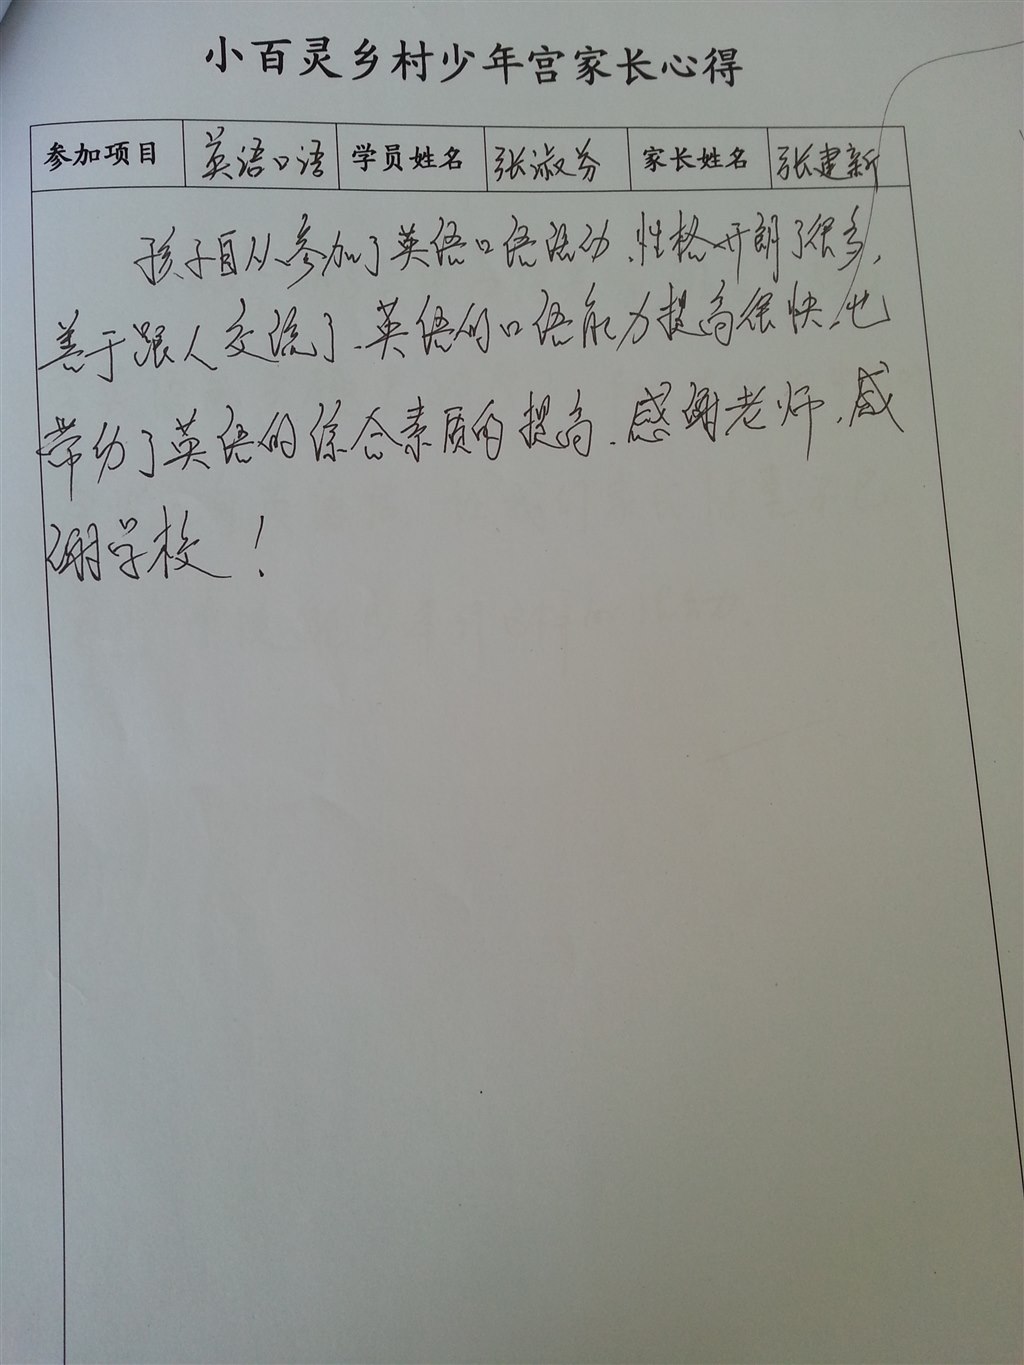 小百灵乡村少年宫家长心得
参加项目 英语口语 学员姓名 张淑芬 家长姓名 张建新
孩子自从参加了英语口语活动,性格开朗了很多,
善于跟人交流了、英语的口语能力提高很快,也
带动了英语的综合素质的提高、感谢老师,感
谢学校!